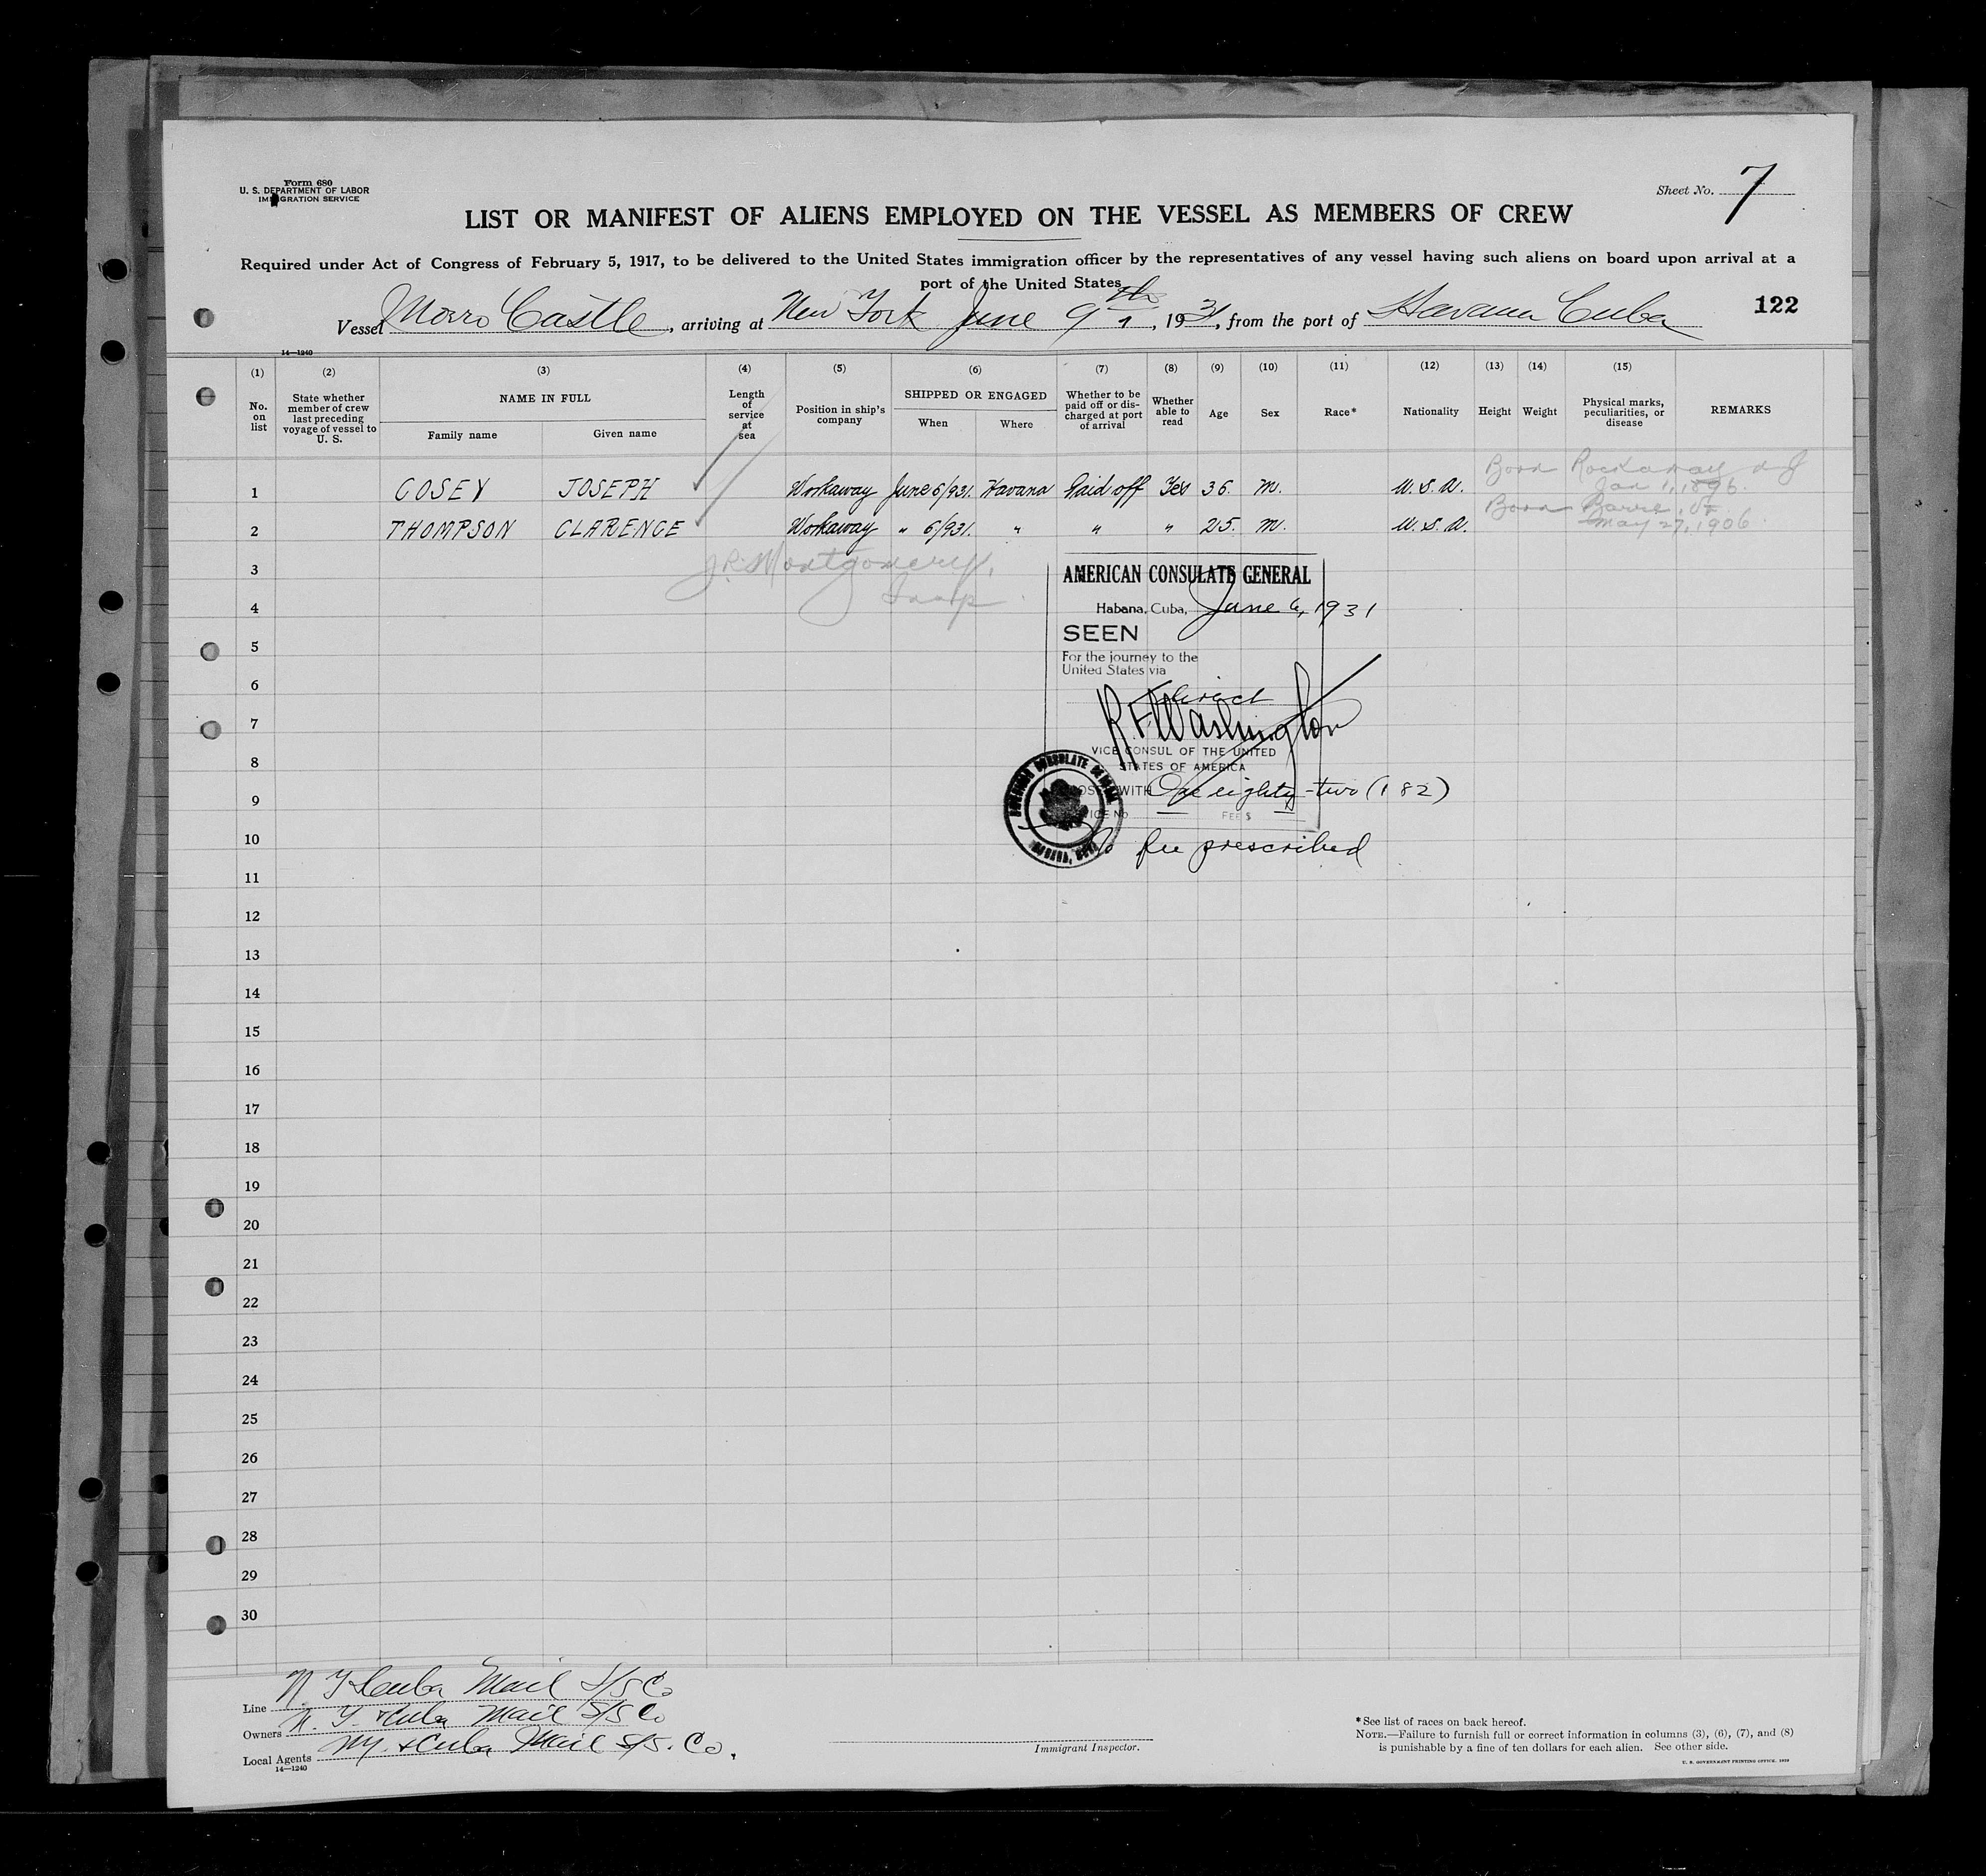 Form 680
U. S. DEPARTMENT OF LABOR
IMMIGRATION SERVICE
Sheet No. 7
LIST OR MANIFEST OF ALIENS EMPLOYED ON THE VESSEL AS MEMBERS OF CREW
Required under Act of Congress of February 5, 1917, to be delivered to the United States immigration officer by the representatives of any vessel having such aliens on board upon arrival at a
port of the United States
Vessel Morro Castle, arriving at New York June 9th, 1931, from the port of Havana Cuba
122
14—1240
(1) (2) (3) (4) (5) (6) (7) (8) (9) (10) (11) (12) (13) (14) (15)
No. on list
State whether member of crew last preceding voyage of vessel to U. S.
NAME IN FULL
Family name
Given name
Length of service at sea
Position in ship's company
SHIPPED OR ENGAGED
When
Where
Whether to be paid off or discharged at port of arrival
Whether able to read
Age
Sex
Race*
Nationality
Height
Weight
Physical marks, peculiarities, or disease
REMARKS
1 COSEY JOSEPH Workaway June 6/931. Havana Paid off Yes 36. M. U.S.A. Born Rockaway N J
Jan 1, 1896.
2 THOMPSON CLARENCE Workaway " 6/931. " " " 25. M. U.S.A. Born Barre, Vt.
May 27, 1906
J.R. Montgomery,
Insp.
3
4
5
6
7
8
9
10
11
12
13
14
15
16
17
18
19
20
21
22
23
24
25
26
27
28
29
30
AMERICAN CONSULATE GENERAL
Habana, Cuba, June 6, 1931
SEEN
For the journey to the
United States via
direct
R F Washington
VICE CONSUL OF THE UNITED
STATES OF AMERICA
WITH One eighty-two (182)
FEE $
No fee prescribed
AMERICAN CONSULATE GENERAL
HABANA, CUBA
Line N Y & Cuba Mail S/S Co
Owners N. Y. & Cuba Mail S/S Co
Local Agents N.Y. & Cuba Mail S/S. Co.
14—1240
Immigrant Inspector.
* See list of races on back hereof.
NOTE.—Failure to furnish full or correct information in columns (3), (6), (7), and (8)
is punishable by a fine of ten dollars for each alien. See other side.